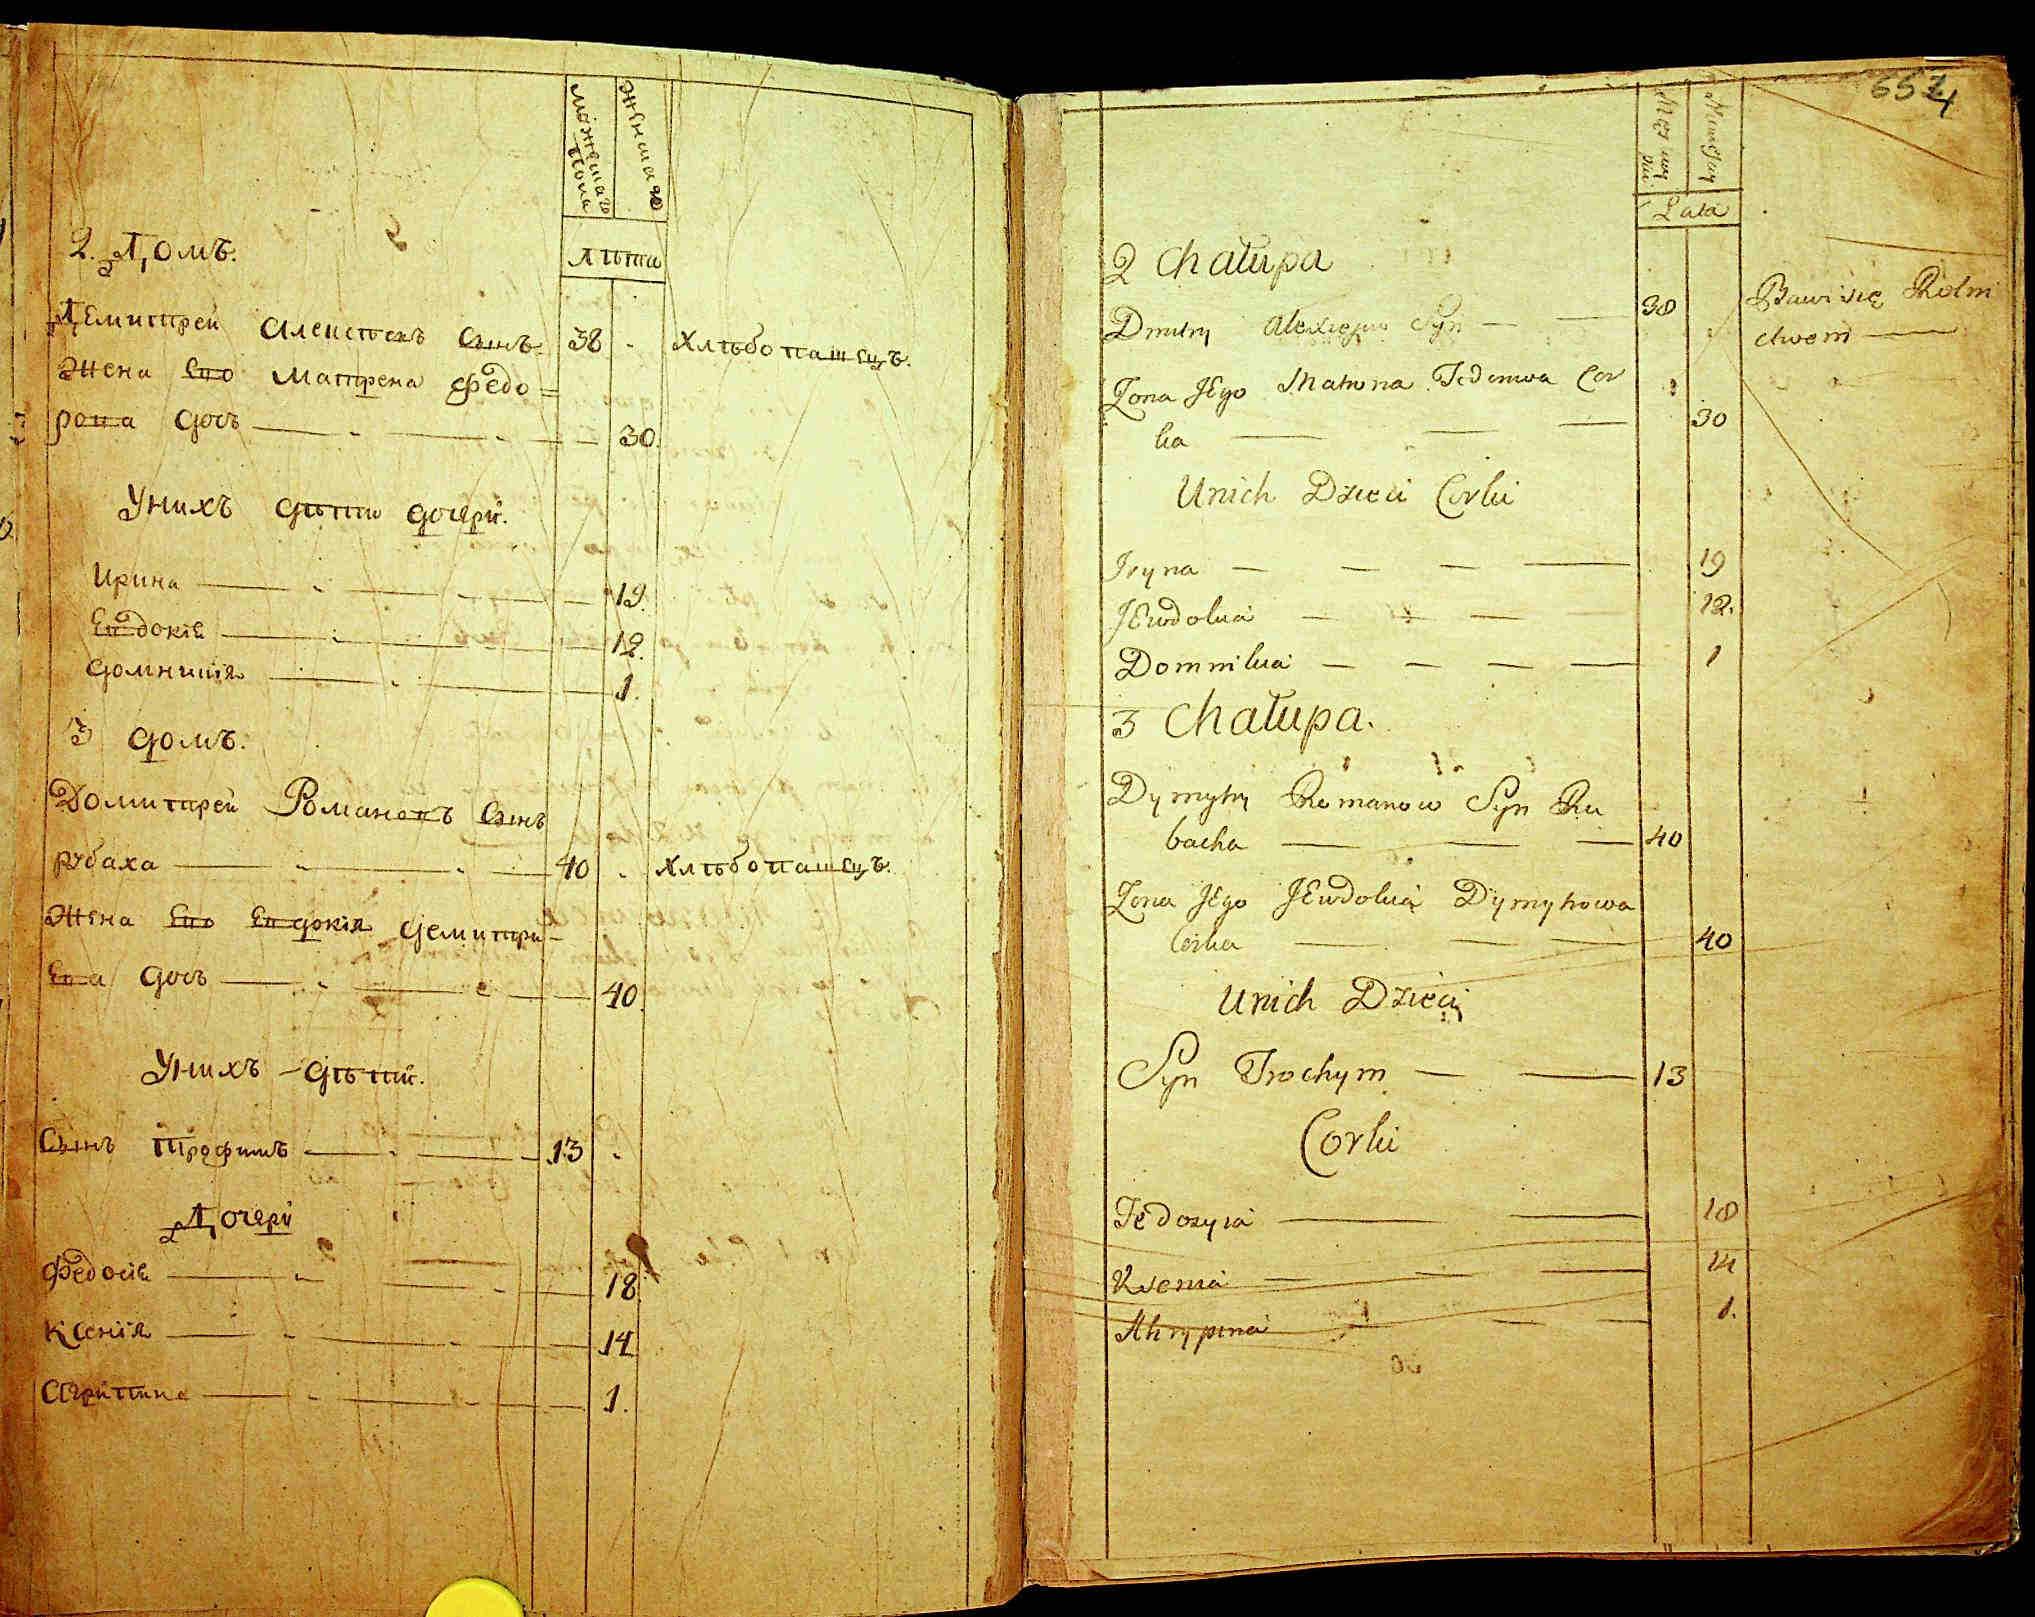 можеска
пола
женска го
лѣта
2. Домъ.
Демитрей Алексѣевъ сынъ 38 - Хлѣбопашецъ.
Жена ево Матрена Федо=
рова дочь 30.
Унихъ дѣти дочери.
Ирина 19.
Евдокія 12.
Домникія 1.
3 домъ.
Домитрей Романовъ сынъ
рубаха 40 - Хлѣбопашецъ.
Жена ево Евдокія демитри-
ева дочь 40.
Унихъ дѣти.
Сынъ трофимъ 13 -
Дочери
Федосія 18.
Ксенія 14
Агрипина 1.
657
4
Lata
2 Chałupa
Dmitry Alexiejew Syn 38 Bawi się Rolni
ctwem
Żona JEgo Matrona Fedorowa Cor
ka 30
Unich Dzieci Corki
Iryna 19
JEwdokia 12.
Domnikia 1
3 Chałupa.
Dymytry Romanow Syn Ru
bacha 40
Żona JEgo JEwdokia Dymytrowa
Corka 40
Unich Dzieci
Syn Trochym 13
Corki
Fedozyia 18
Ksenia 14
Ahrypina 1.